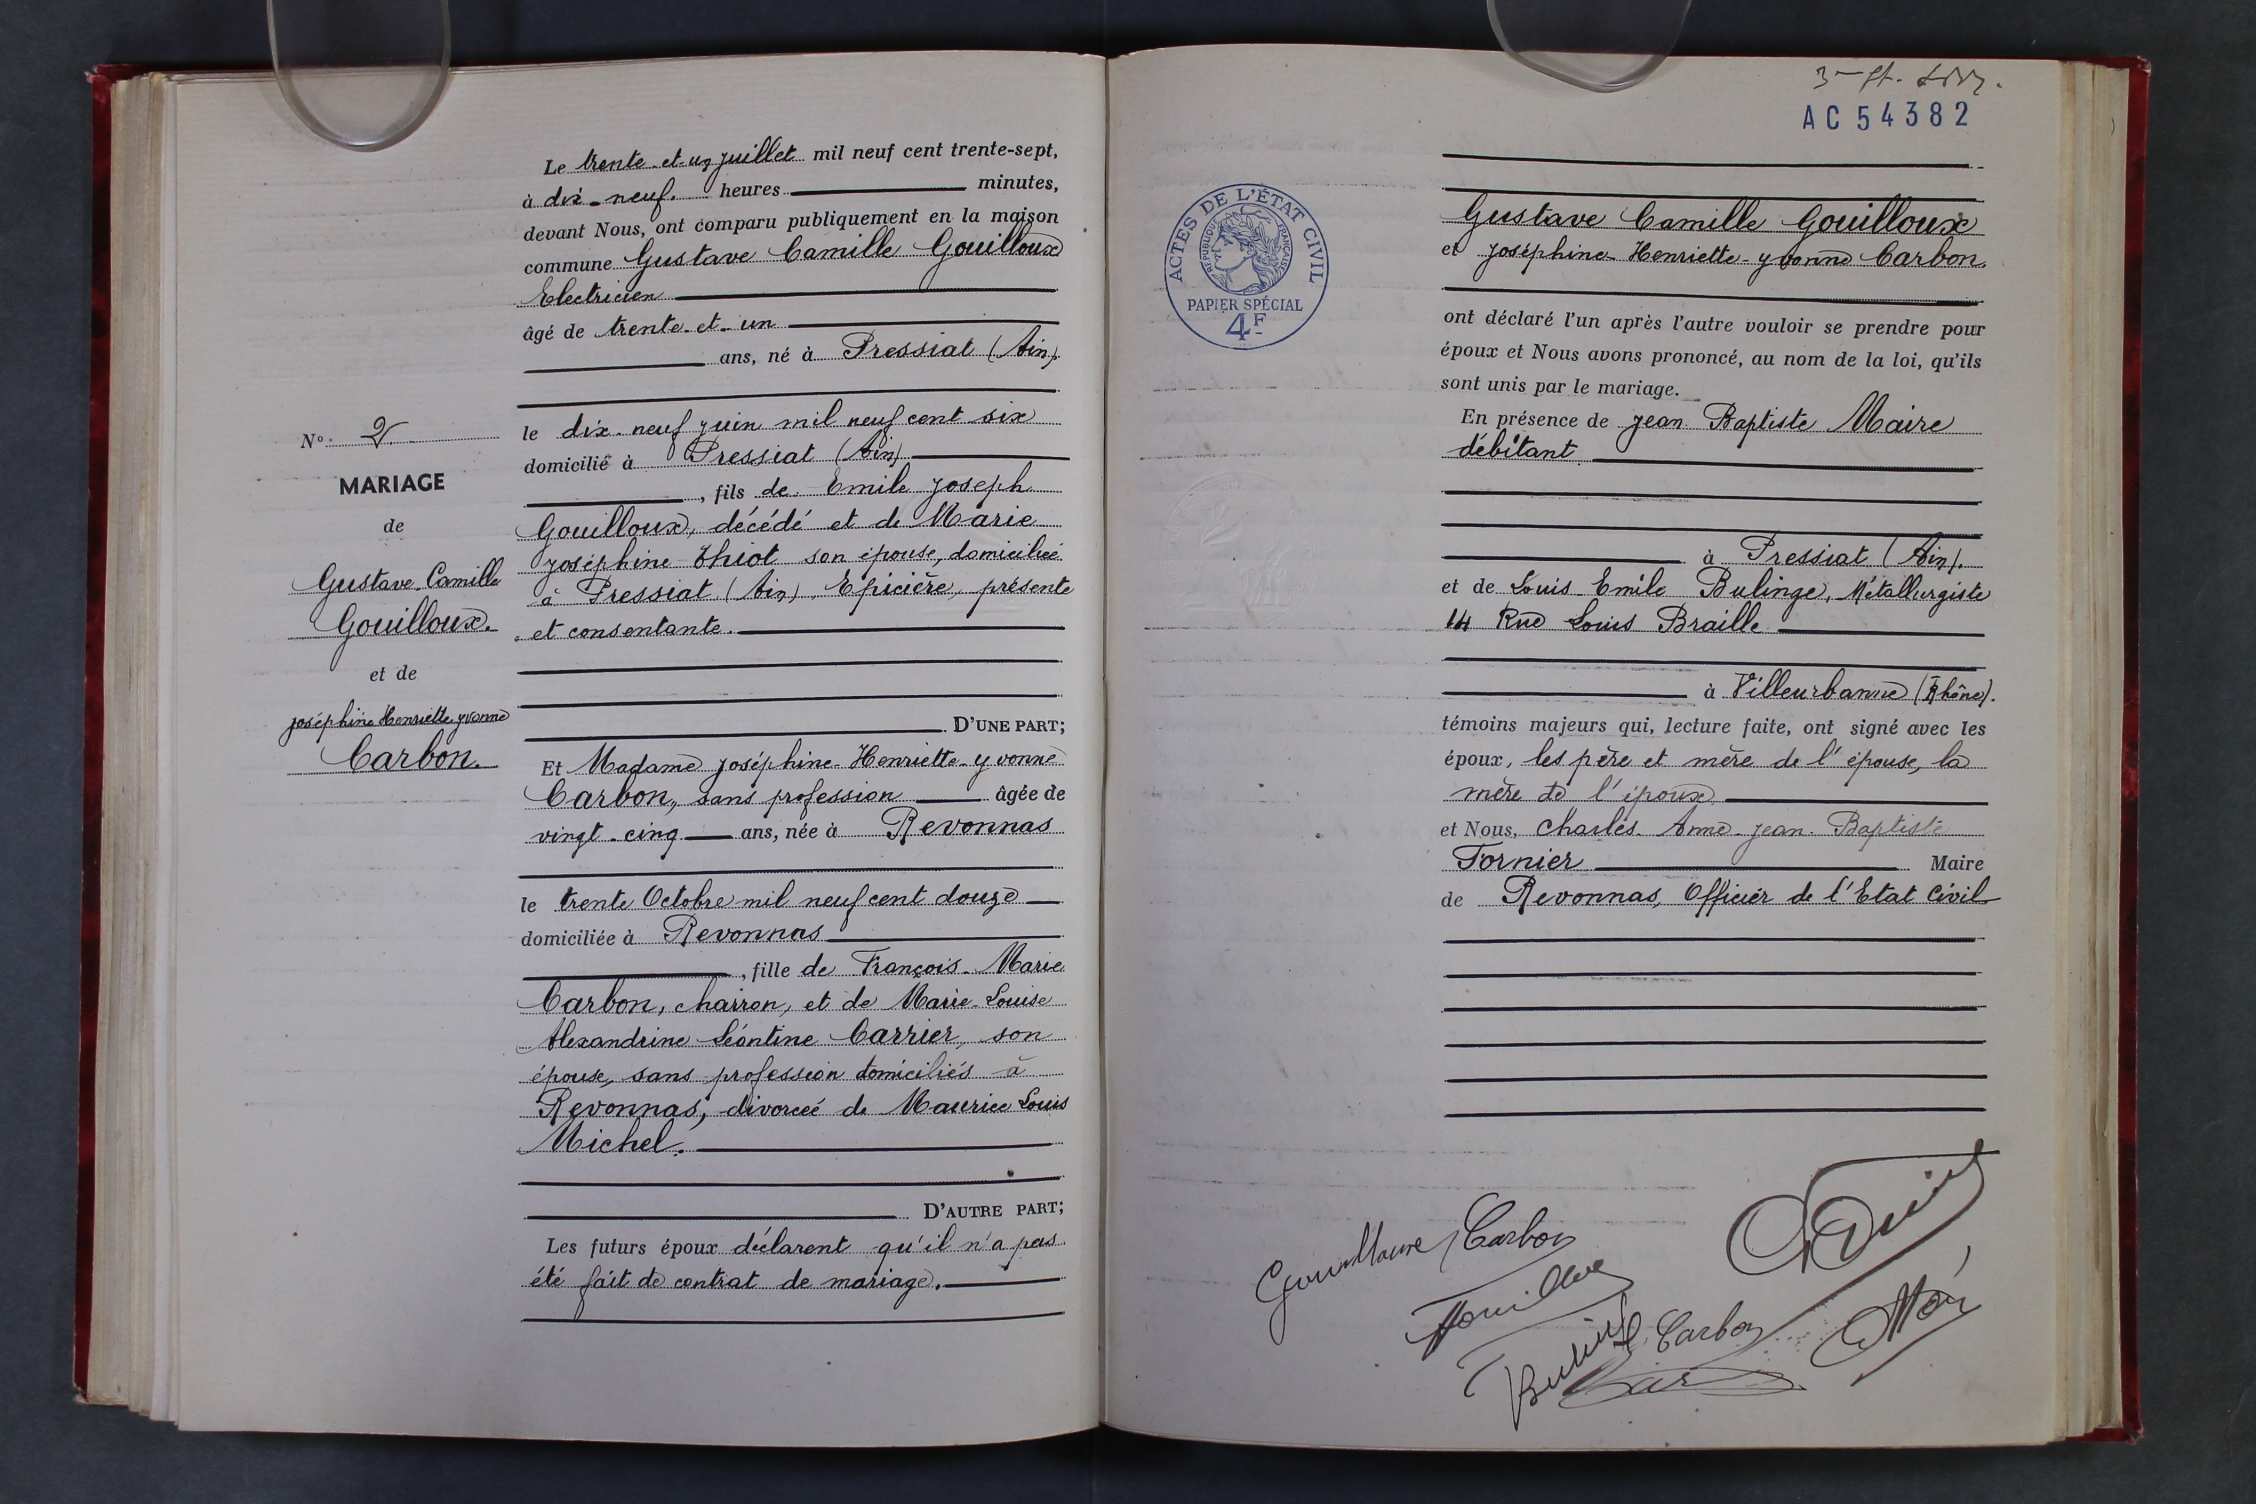 Le trente-et-un juillet mil neuf cent trente-sept,
à dix-neuf. heures minutes,
devant Nous, ont comparu publiquement en la maison
commune Gustave Camille Gouilloux
Electricien
âgé de trente-et-un
ans, né à Pressiat (Ain).
le dix-neuf juin mil neuf cent six
domicilié à Pressiat (Ain)
, fils de Emile Joseph
Gouilloux, décédé et de Marie
Joséphine Thiot son épouse, domiciliée
à Pressiat (Ain). Épicière, présente
et consentante.
D'UNE PART;
Et Madame Joséphine-Henriette-Yvonne
Carbon, sans profession âgée de
vingt-cinq ans, née à Revonnas
le trente Octobre mil neuf cent douze
domiciliée à Revonnas
, fille de François-Marie
Carbon, charron, et de Marie-Louise
Alexandrine Léontine Carrier, son
épouse, sans profession domiciliés à
Revonnas, divorcée de Maurice Louis
Michel.
D'AUTRE PART;
Les futurs époux déclarent qu'il n'a pas
été fait de contrat de mariage.
N° 2
MARIAGE
de
Gustave-Camille
Gouilloux.
et de
Joséphine Henriette Yvonne
Carbon.
AC 54382
ACTES DE L'ÉTAT CIVIL
RÉPUBLIQUE FRANÇAISE
PAPIER SPÉCIAL
4F
Gustave Camille Gouilloux
et Joséphine-Henriette-Yvonne Carbon.
ont déclaré l'un après l'autre vouloir se prendre pour
époux et Nous avons prononcé, au nom de la loi, qu'ils
sont unis par le mariage.
En présence de Jean Baptiste Maire
débitant
à Pressiat (Ain).
et de Louis-Emile Bulinge, Métallurgiste
14 Rue Louis Braille
à Villeurbanne (Rhône).
témoins majeurs qui, lecture faite, ont signé avec les
époux, les père et mère de l'épouse, la
mère de l'époux
et Nous, Charles-Anne-Jean-Baptiste
Fornier Maire
de Revonnas, Officier de l'Etat Civil
Carbon
Carbon